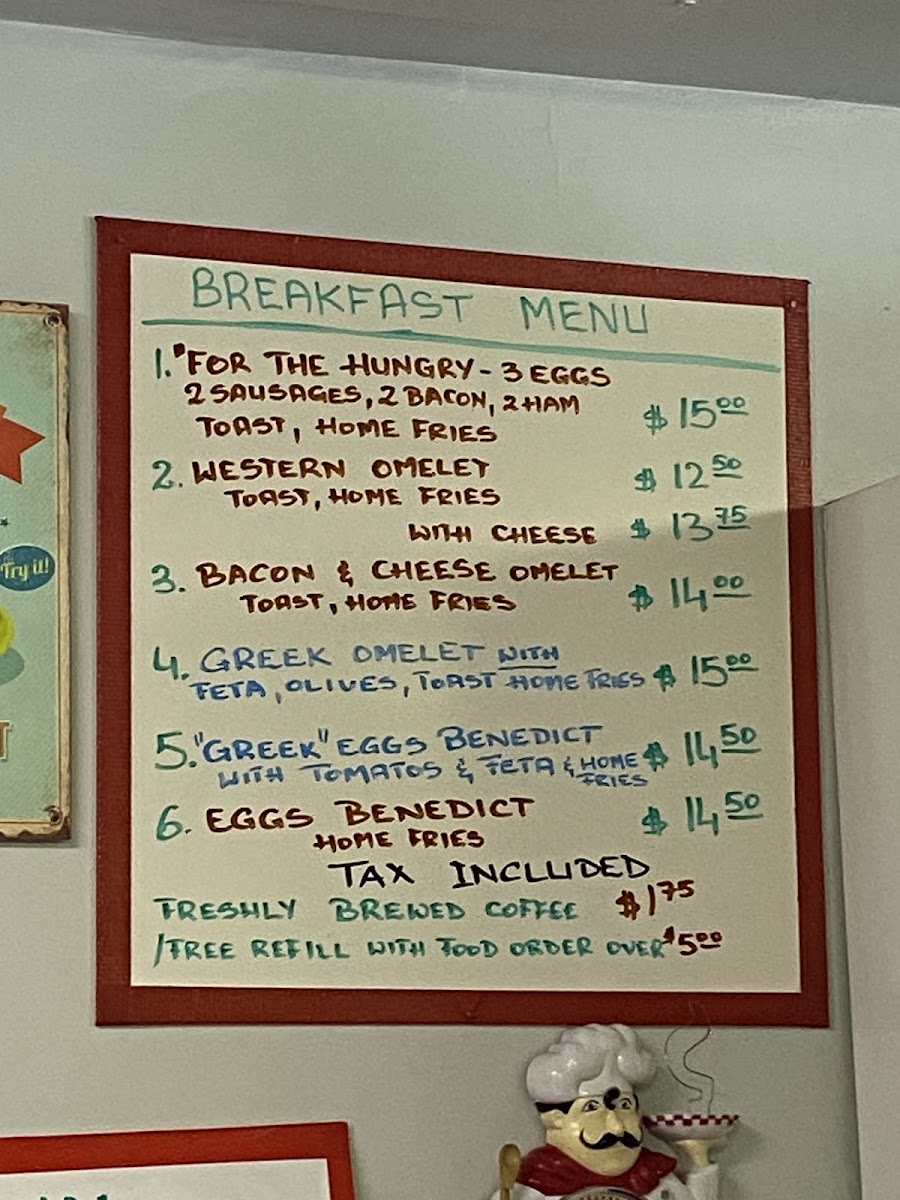 BREAKFAST MENU
1. "FOR THE HUNGRY - 3 EGGS
2 SAUSAGES, 2 BACON, 2 HAM
TOAST, HOME FRIES $15.00
2. WESTERN OMELET $12.50
TOAST, HOME FRIES
WITH CHEESE $13.75
3. BACON & CHEESE OMELET
TOAST, HOME FRIES $14.00
4. GREEK OMELET WITH
FETA, OLIVES, TOAST HOME FRIES $15.00
5. "GREEK" EGGS BENEDICT
WITH TOMATOS & FETA & HOME FRIES $14.50
6. EGGS BENEDICT $14.50
HOME FRIES
TAX INCLUDED
FRESHLY BREWED COFFEE $1.75
/FREE REFILL WITH FOOD ORDER OVER $5.00
Try it!